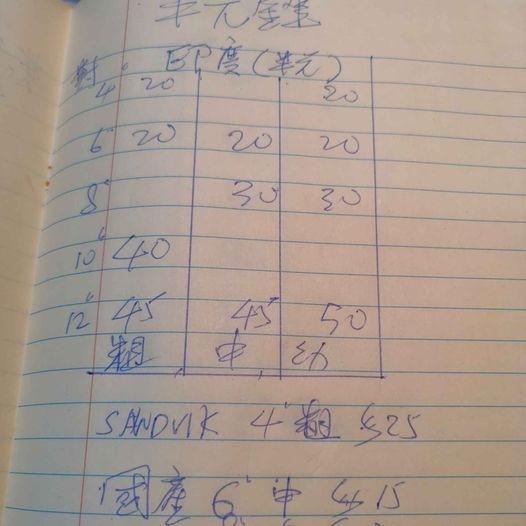 半元銼
印度(半元)
4" 20 20
6" 20 20 20
8" 30 30
10" 40
12" 45 45 50
粗 中 幼
SANDVIK 4" 粗 $25
國產 6" 中 $15
8"